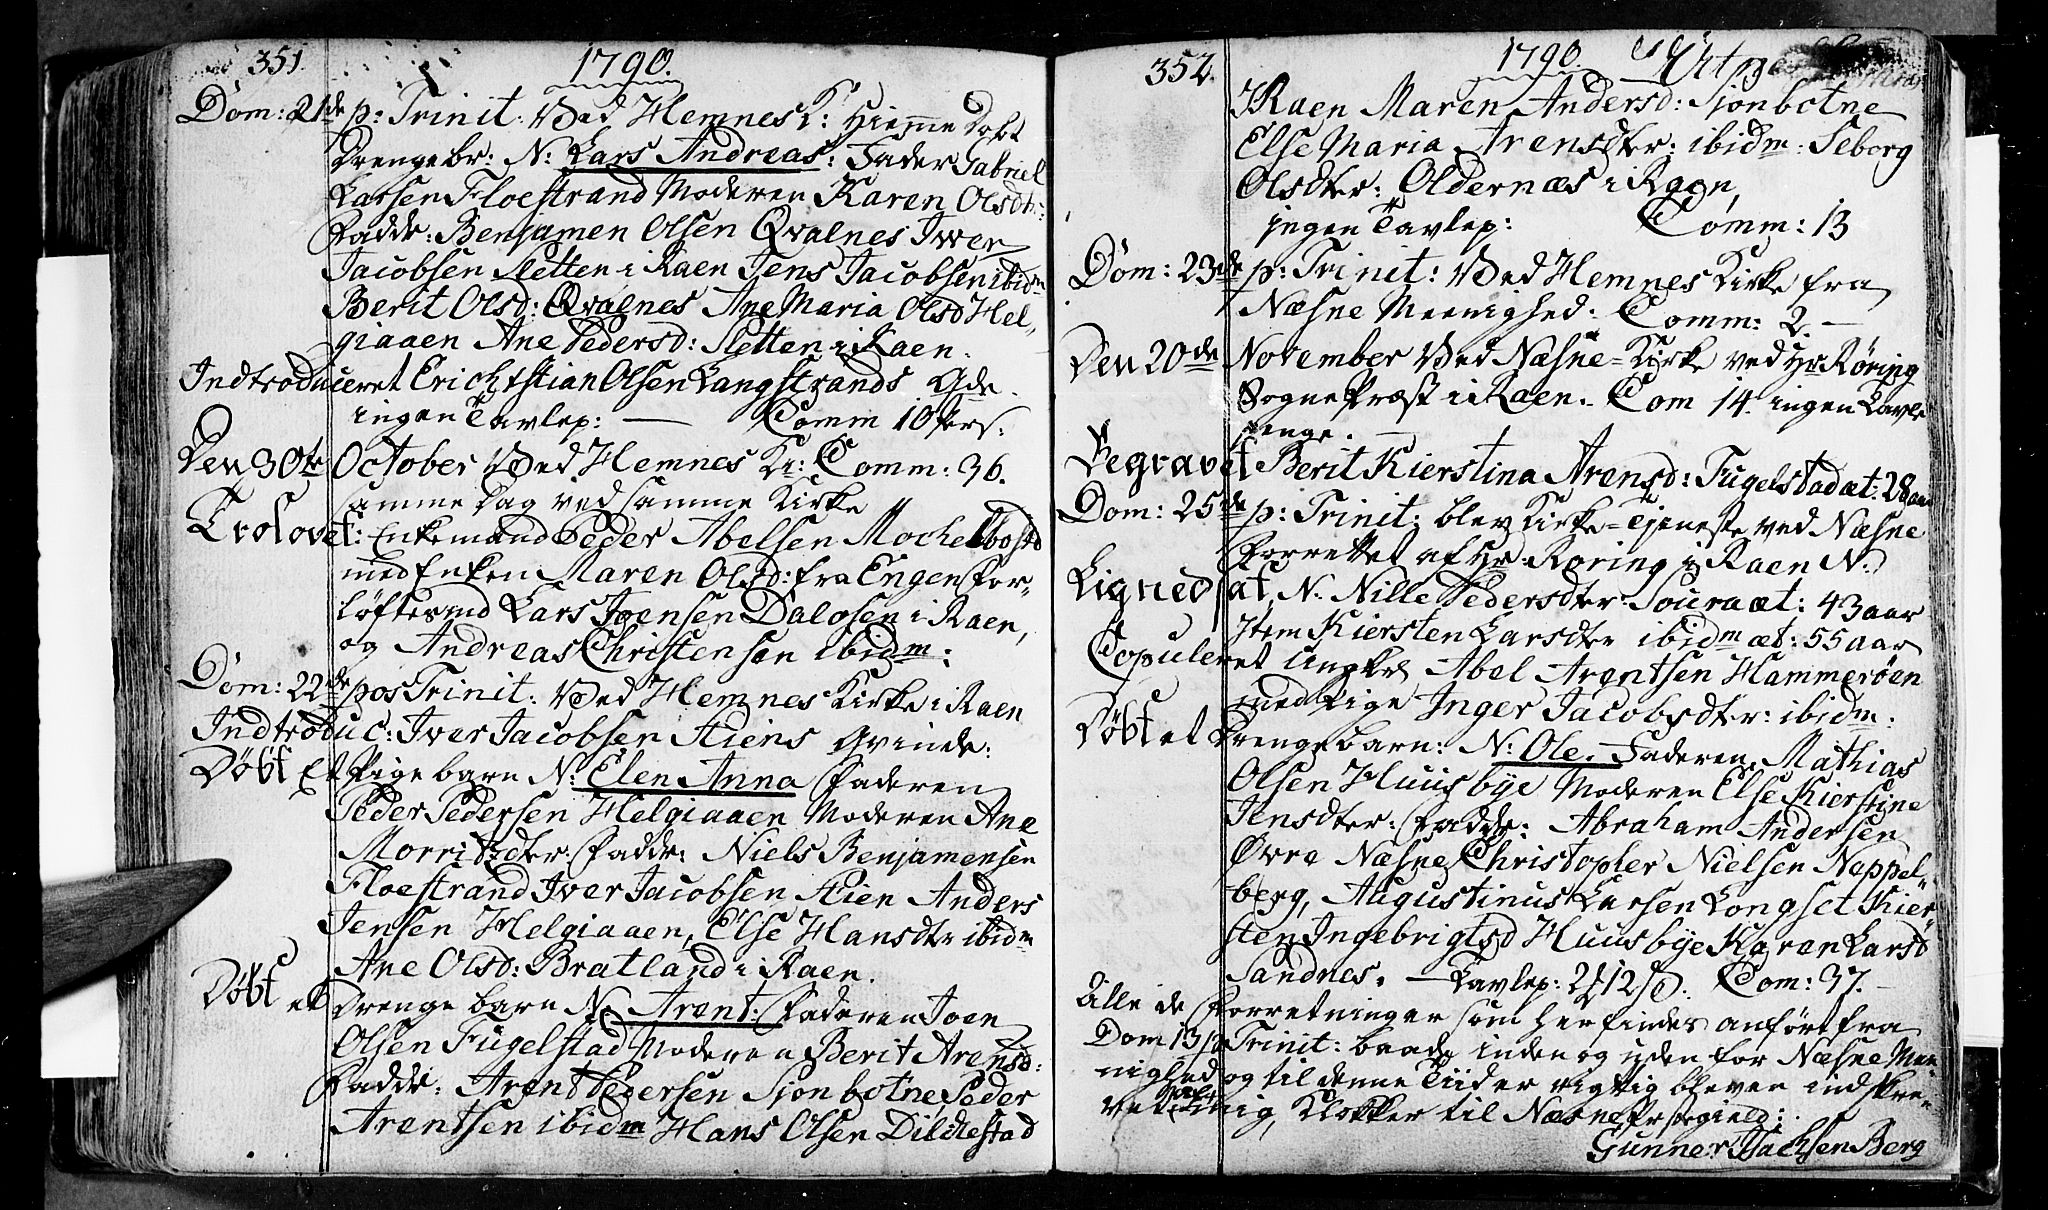 351.
1790.
Dom: 21de p: Trinit: Ved Hemnes K: Hiemme Døbt
Drengebr: N: Lars Andreas: Fader Gabriel
Larsen Floestrand Moderen Karen Olsdtr:
Fadde: Benjamen Olsen Qvalnes Iver
Jacobsen Sletten i Raen Jens Jacobsen ibidm
Berit Olsd: Qvalnes Ane Maria Olsd Hel-
giaaen Ane Pedersd: Sletten i Raen.
Indtroduceret Erich Stian Olsen Langstrands Qde.
ingen Tavlep: — Comm 10 Pers:
Den 30te October Ved Hemnes K: Comm: 36.
samme Dag ved samme Kirke
Trolovet: Enkemand Peder Abelsen Mochelbostd
med Enken Maren Olsd: fra Engen for-
løftesmd Lars Joensen Dalosen i Raen,
og Andreas Christensen ibidm:
Dom: 22de pos Trinit: Ved Hemnes Kirke i Raen
Indtroduc: Iver Jacobsen Stiens Qvinde:
Døbt Et Pigebarn N: Elen Anna Faderen
Peder Pedersen Helgiaaen Moderen Ane
Morritzdter: Fadde: Niels Benjamensen
Floestrand Iver Jacobsen Stien Anders
Jensen Helgiaaen, Else Hansdtr ibidm
Ane Olsd: Bratland i Raen.
Døbt et Drenge barn N: Arent: Faderen Joen
Olsen Fugelstad Moderen Berit Arensd:
Fadde: Arent Pedersen Sjonbotne, Peder
Arentsen ibidm Hans Olsen Dilchestad
352.
1790
Raen Maren Andersd: Sjonbotne
Else Maria Arensdter: ibidm: Seborg
Olsdter: Oldernæs i Raen,
ingen Tavlep: Comm: 13
Dom: 23de p: Trinit: Ved Hemnes Kirke fra
Næsne Meenighed: Comm: 2. —
Den 20de November Ved Næsne Kirke ved Hr Røring
Sogne Præst i Raen. Com 14. ingen Tavle
penge. —
Begravet Berit Kierstina Arensd: Fugelstad æt: 28 aar
Dom: 25de p: Trinit: blev Kirke-Tjeneste ved Næsne
forrettet af Hr: Roring i Raen N:
Lignedsat, N: Nille Pedersdter: Soura æt: 43 aar
Item Kiersten Larsdter ibidm æt: 55 aar
Copuleret Ungkl Abel Arentsen Hammerøen
med Pige Inger Jacobsdter: ibidm:
Døbt et Drengebarn: N: Ole. Faderen Mathias
Olsen Huusbye Moderen Else Kierstine
Jensdter: Fadde: Abraham Andersen
Øvre Næsne, Christopher Nielsen Neppel-
berg, Augustinus Larsen Longset Kier-
sten Ingebrigtsd Huusbye Karen Larsd
Sandnes. — Tavlep: Com: 37. —
Alle de Forretninger som her findes anført fra
Dom 13 p Trinit: baade inden og uden for Næsne Mee-
nighed og til denne Tiid er rigtig bleven indskre-
vet mig, Klokker til Næsne Præstegield:
Gunner Isachsen Berg